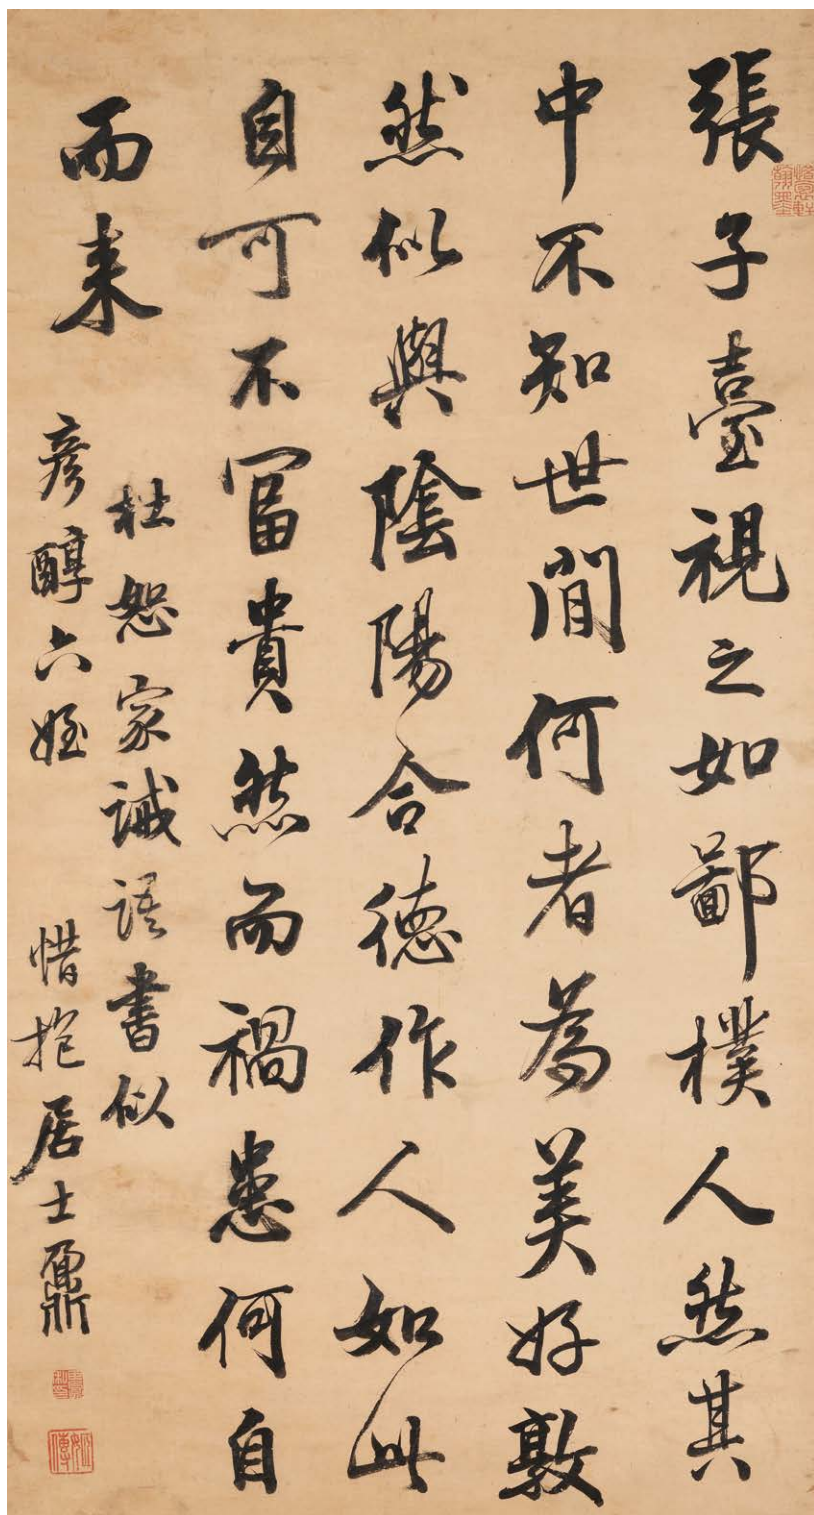 張子臺視之如鄙樸人然其
中不知世間何者為美好敦
然似與陰陽合德作人如此
自可不富貴然而禍患何自
而来
杜恕家誡語書似
彥醇六姪
惜抱居士鼐